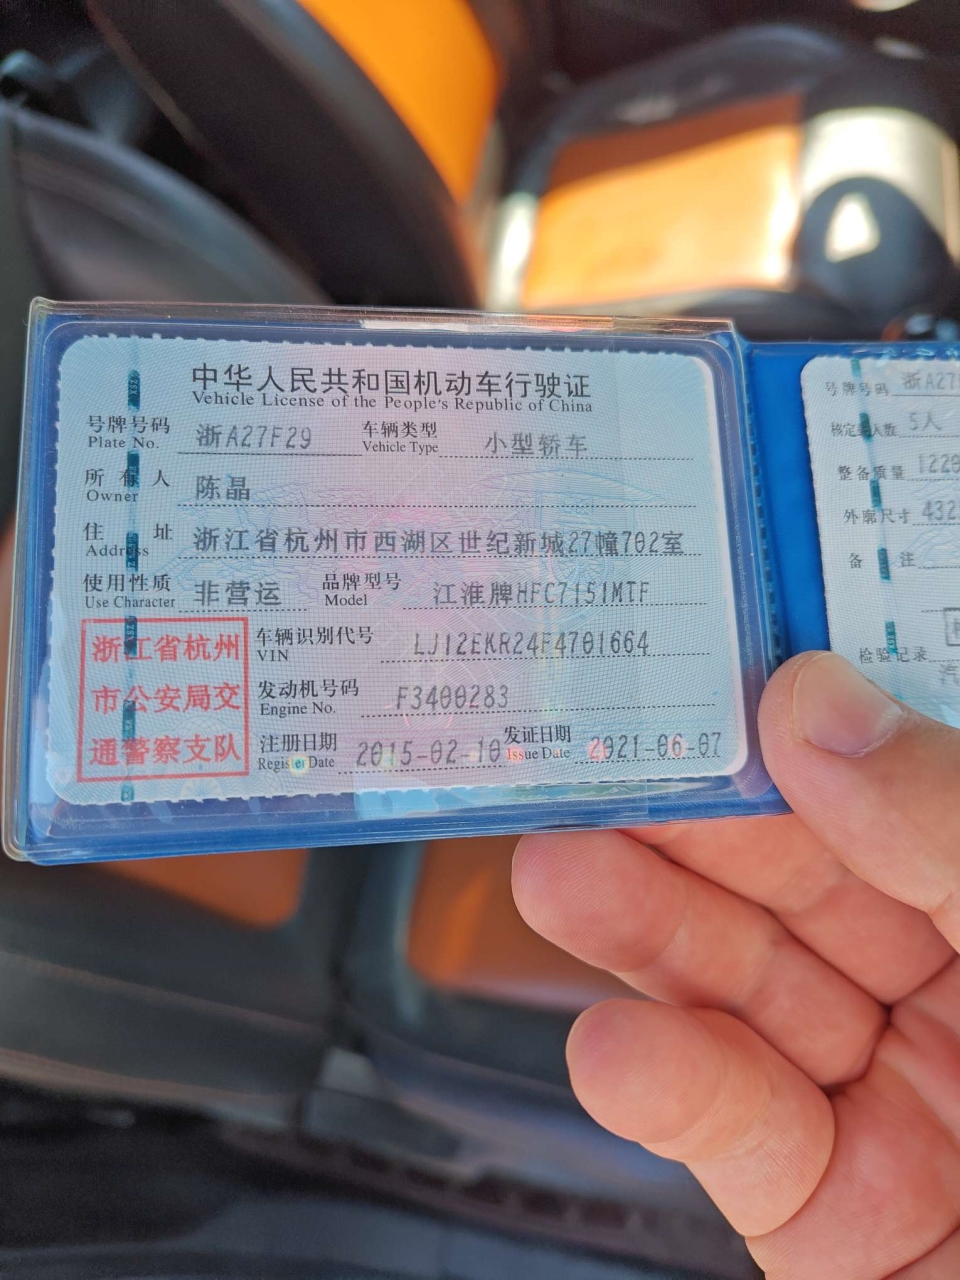 中华人民共和国机动车行驶证
Vehicle License of the People's Republic of China
号牌号码 浙A27F29 车辆类型 小型轿车
Plate No. Vehicle Type
所有人 陈晶
Owner
住址 浙江省杭州市西湖区世纪新城27幢702室
Address
使用性质 非营运 品牌型号 江淮牌HFC7151MTF
Use Character Model
浙江省杭州
市公安局交
通警察支队
车辆识别代号 LJ12EKR24F4701664
VIN
发动机号码 F3400283
Engine No.
注册日期 2015-02-10 发证日期 2021-06-07
Register Date Issue Date
号牌号码 浙A27
核定载人数 5人
整备质量 122
外廓尺寸 432
备注
检验记录